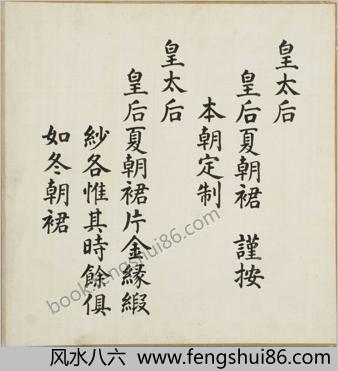 皇太后
皇后夏朝裙 謹按
本朝定制
皇太后
皇后夏朝裙片金緣緞
紗各惟其時餘俱
如冬朝裙
book.fengshui86.com
风水八六 www.fengshui86.com